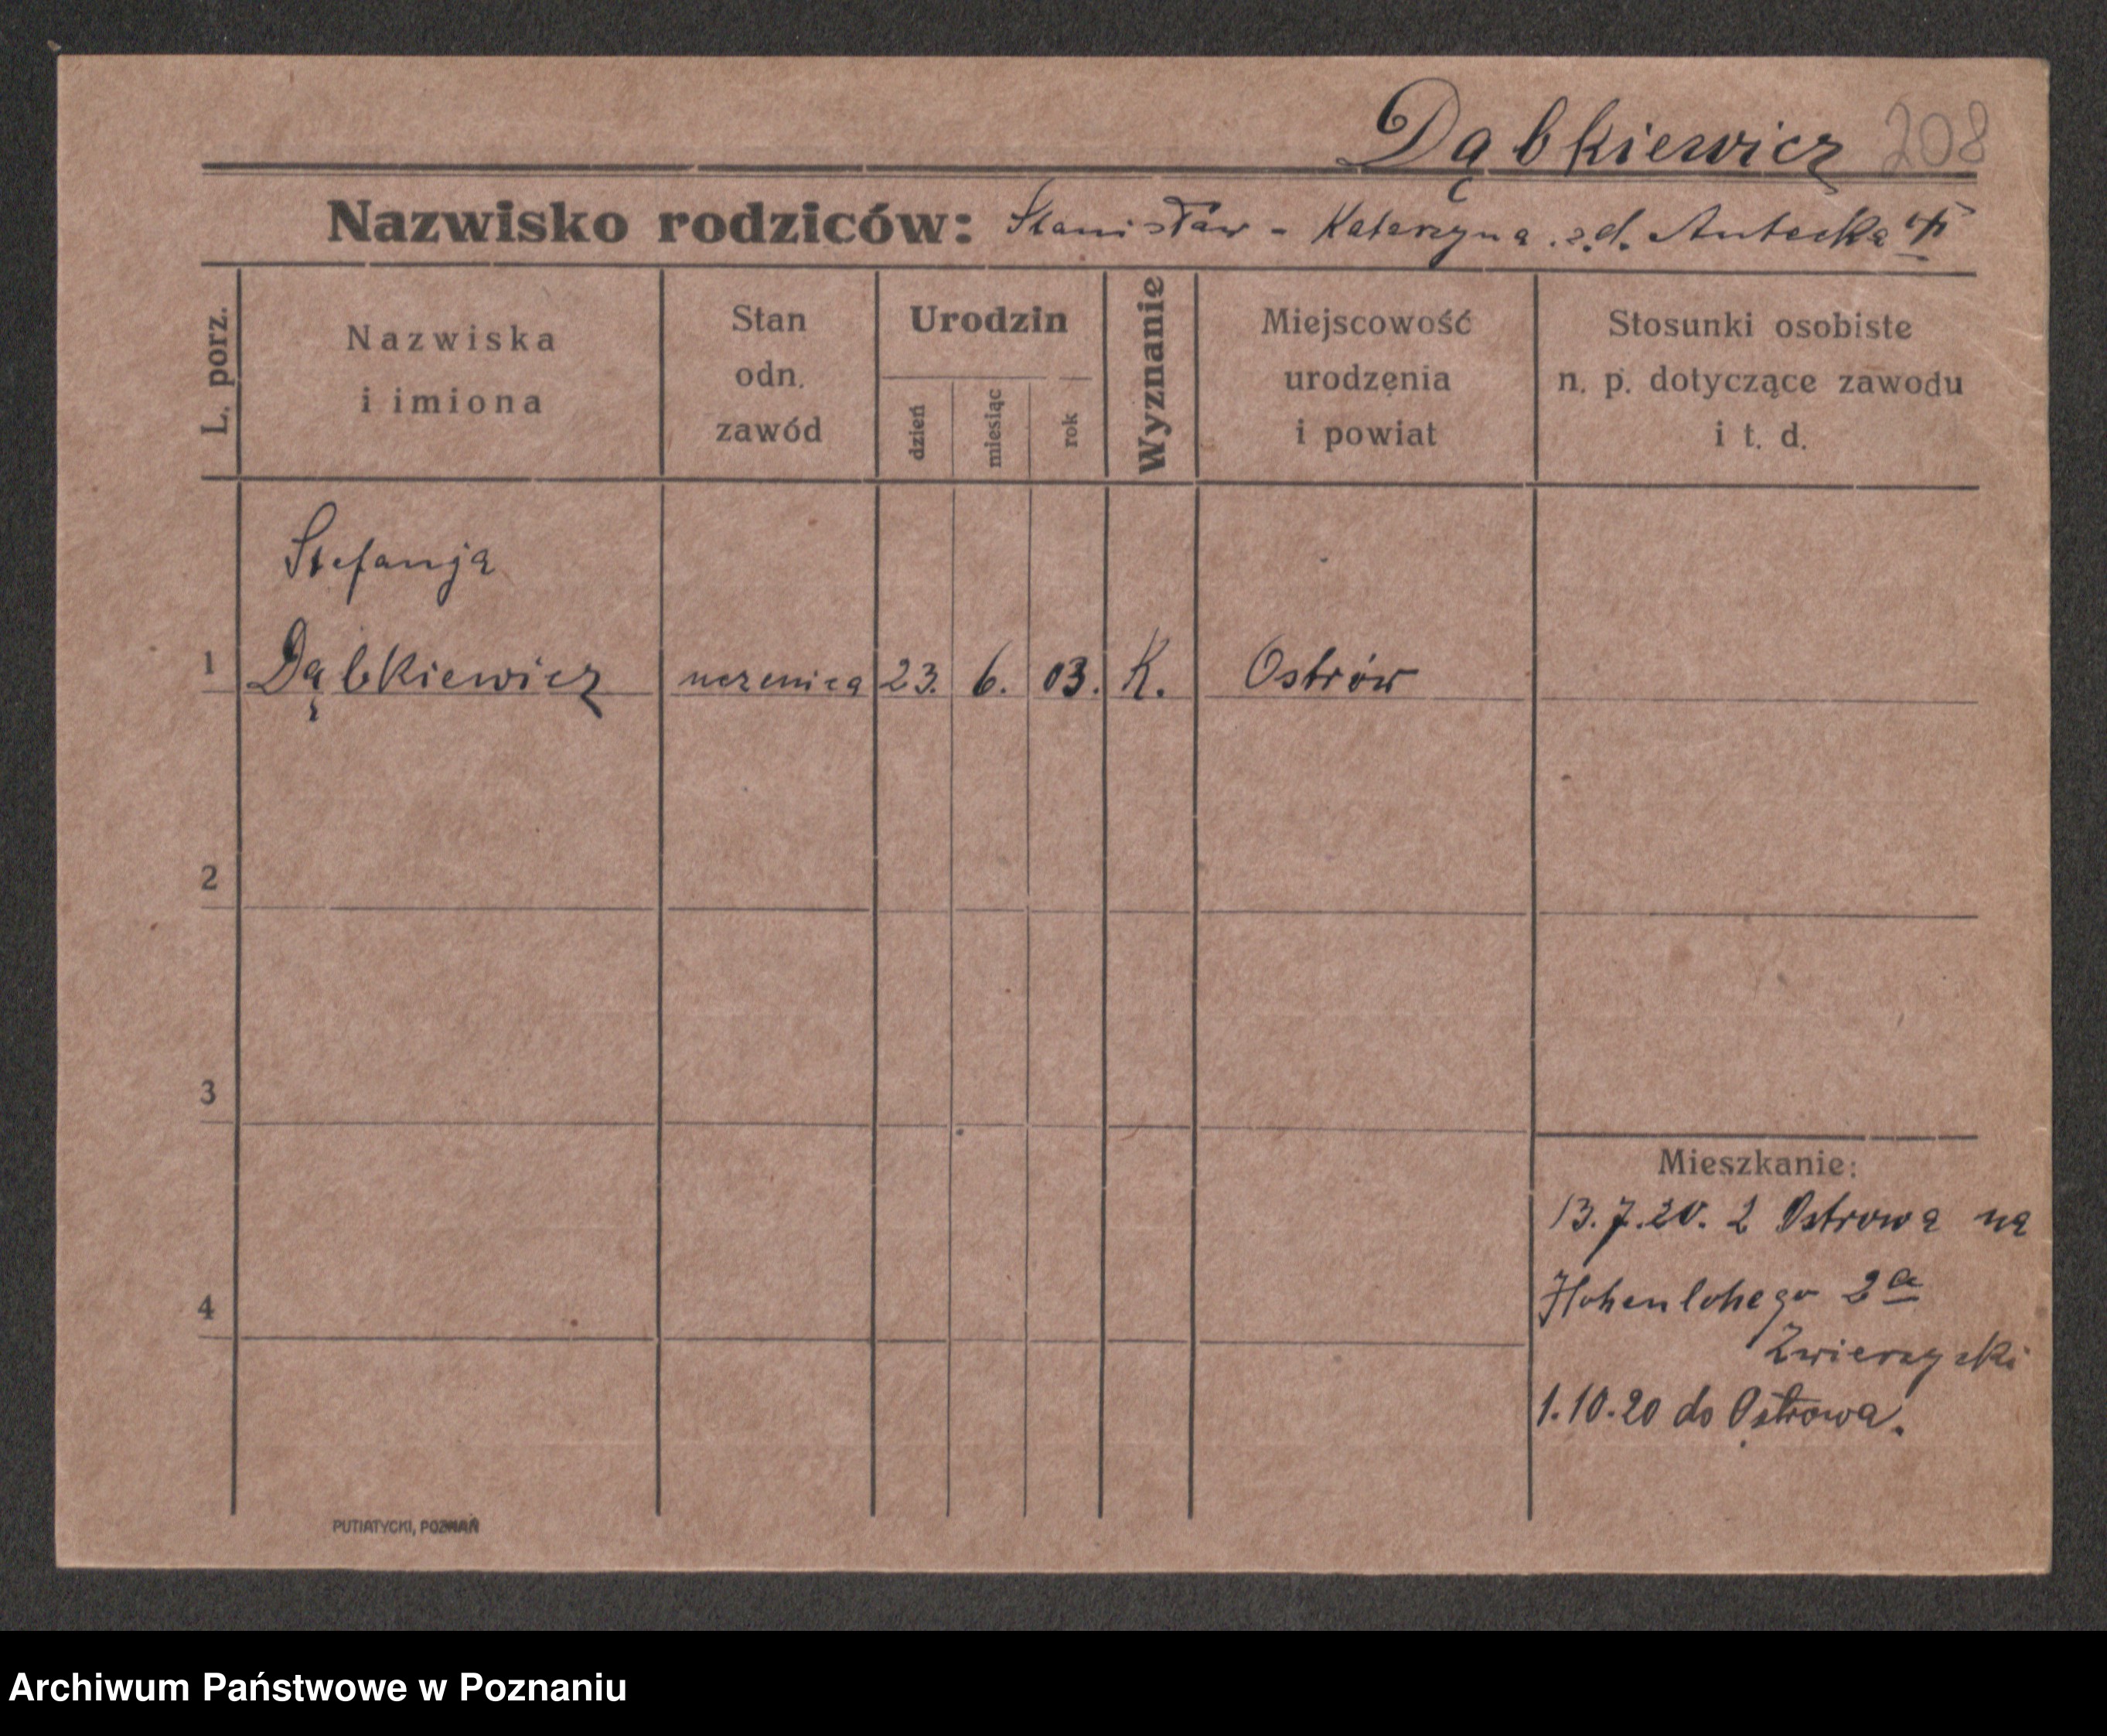 Dąbkiewicz 208
Nazwisko rodziców: Stanisław - Katarzyna z.d. Antecka
L. porz.
Nazwiska
i imiona
Stan
odn.
zawód
Urodzin
dzień
miesiąc
rok
Wyznanie
Miejscowość
urodzenia
i powiat
Stosunki osobiste
n. p. dotyczące zawodu
i t. d.
Stefanja
1 Dąbkiewicz uczenica 23. 6. 03. K. Ostrów
2
3
Mieszkanie:
13.7.20. z Ostrowa na
Hohenlohego 2a
4
Zwierzycki
1.10.20 do Ostrowa.
PUTIATYCKI, POZNAŃ
Archiwum Państwowe w Poznaniu